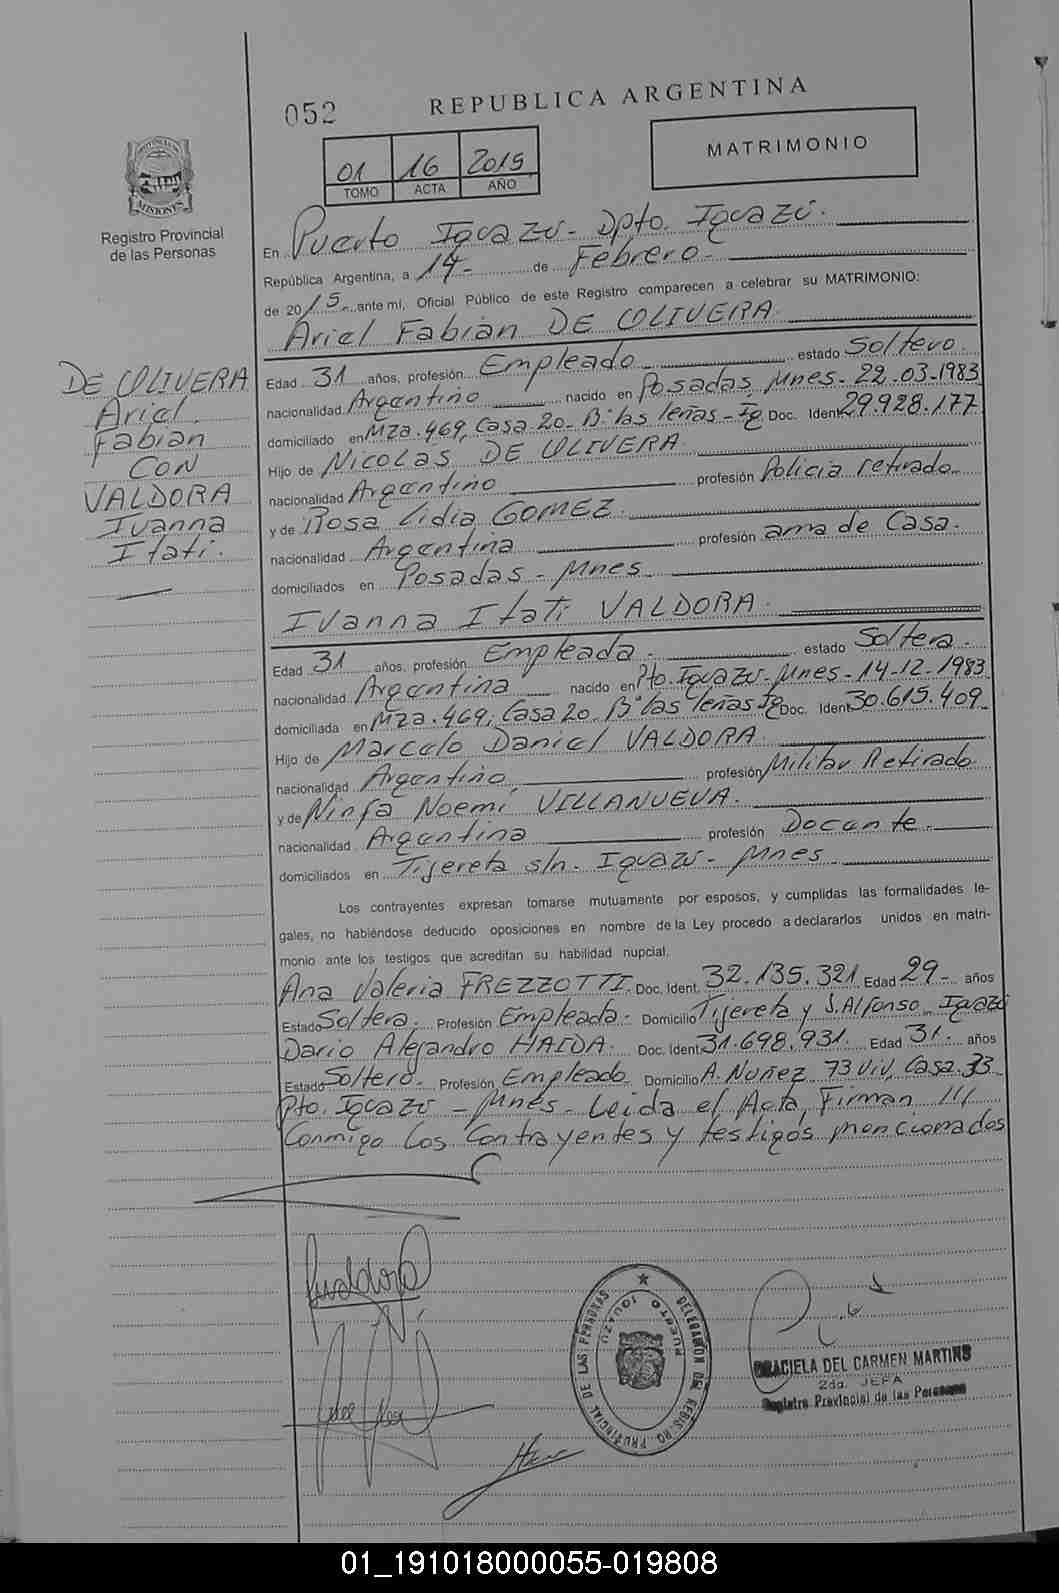 052 REPUBLICA ARGENTINA
01 16 2015
TOMO ACTA AÑO
MATRIMONIO
PROVINCIA DE MISIONES
Registro Provincial
de las Personas
En Puerto Iguazú - Dpto. Iguazú.
República Argentina, a 14- de Febrero-
de 2015 ante mi, Oficial Público de este Registro comparecen a celebrar su MATRIMONIO:
Ariel Fabián DE OLIVERA
DE OLIVERA
Ariel
Fabián
CON
VALDORA
Ivanna
Itatí.
Edad 31 años, profesión Empleado estado Soltero.
nacionalidad Argentino nacido en Posadas Mnes - 22-03-1983
domiciliado en Mza. 469, Casa 20- B° las leñas - Ig Doc. Ident 29.928.177
Hijo de NICOLAS DE OLIVERA
nacionalidad Argentino profesión Policia retirado
y de Rosa Lidia GOMEZ.
nacionalidad Argentina profesión ama de Casa.
domiciliados en Posadas - Mnes
Ivanna Itatí VALDORA.
Edad 31 años, profesión Empleada. estado Soltera.
nacionalidad Argentina nacido en Pto. Iguazú - Mnes - 14-12-1983
domiciliada en Mza. 469, Casa 20 B° las leñas Ig Doc. Ident 30.615.409
Hijo de Marcelo Daniel VALDORA
nacionalidad Argentino profesión Militar Retirado
y de Ninfa Noemí VILLANUEVA.
nacionalidad Argentina profesión Docente
domiciliados en Tijereta s/n. Iguazú - Mnes
Los contrayentes expresan tomarse mutuamente por esposos, y cumplidas las formalidades le-
gales, no habiéndose deducido oposiciones en nombre de la Ley procedo a declararlos unidos en matri-
monio ante los testigos que acreditan su habilidad nupcial.
Ana Valeria FREZZOTTI. Doc. Ident. 32.135.321 Edad 29- años
Estado Soltera. Profesión Empleada. Domicilio Tijereta y S. Alfonso Iguazú
Dario Alejandro HAIDA. Doc. Ident 31.698.931. Edad 31. años
Estado Soltero. Profesión Empleado Domicilio A. Nuñez 73 Viv, Casa 33
Pto. Iguazú - Mnes - Leida el Acta, Firman ///
Conmigo los Contrayentes y testigos mencionados
DELEGACION DEL REGISTRO PROVINCIAL DE LAS PERSONAS
PUERTO IGUAZU
GRACIELA DEL CARMEN MARTINS
2da. JEFA
Registro Provincial de las Personas
01_191018000055-019808